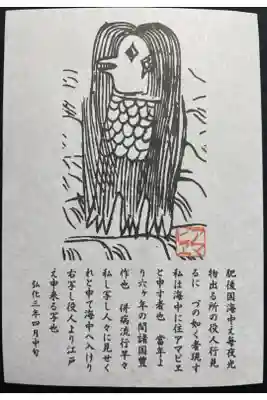 肥後国海中え毎夜光
物出る所の役人行見
るに づの如く者現す
私は海中に住アマビエ
と申す者也 當年よ
り六ヶ年の間諸国豊
作也 併病流行早々
私し写し人々に見せく
れと申て海中へ入けり
右写し役人より江戸
え申来る写也
弘化三年四月中旬